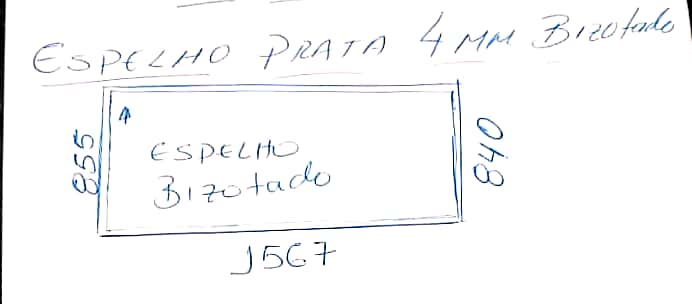 ESPELHO PRATA 4 MM Bizotado
855
↑
ESPELHO
Bizotado
840
1567